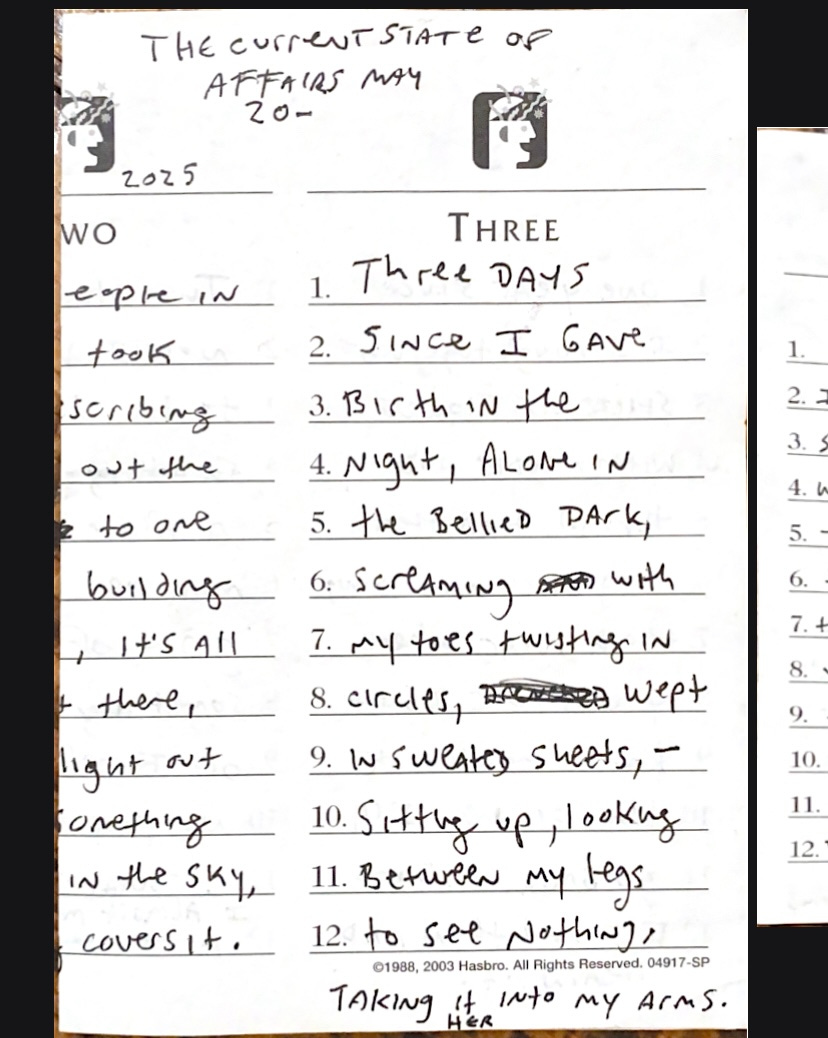 THE current STATE OF
AFFAIRS MAY
20-
2025
WO
eople IN
took
scribing
out the
to one
building
, It's All
there,
light out
something
IN the SKY,
covers it.
THREE
1. Three DAYS
2. SINce I GAVE
3. Birth IN the
4. Night, ALONE IN
5. the Bellied DArk,
6. Screaming with
7. my toes twisting IN
8. circles, wept
9. IN sweated sheets, -
10. Sitting up, looking
11. Between my legs
12. to see Nothing,
©1988, 2003 Hasbro. All Rights Reserved. 04917-SP
TAKING it INto my Arms.
HER
1.
2.
3.
4.
5.
6.
7.
8.
9.
10.
11.
12.